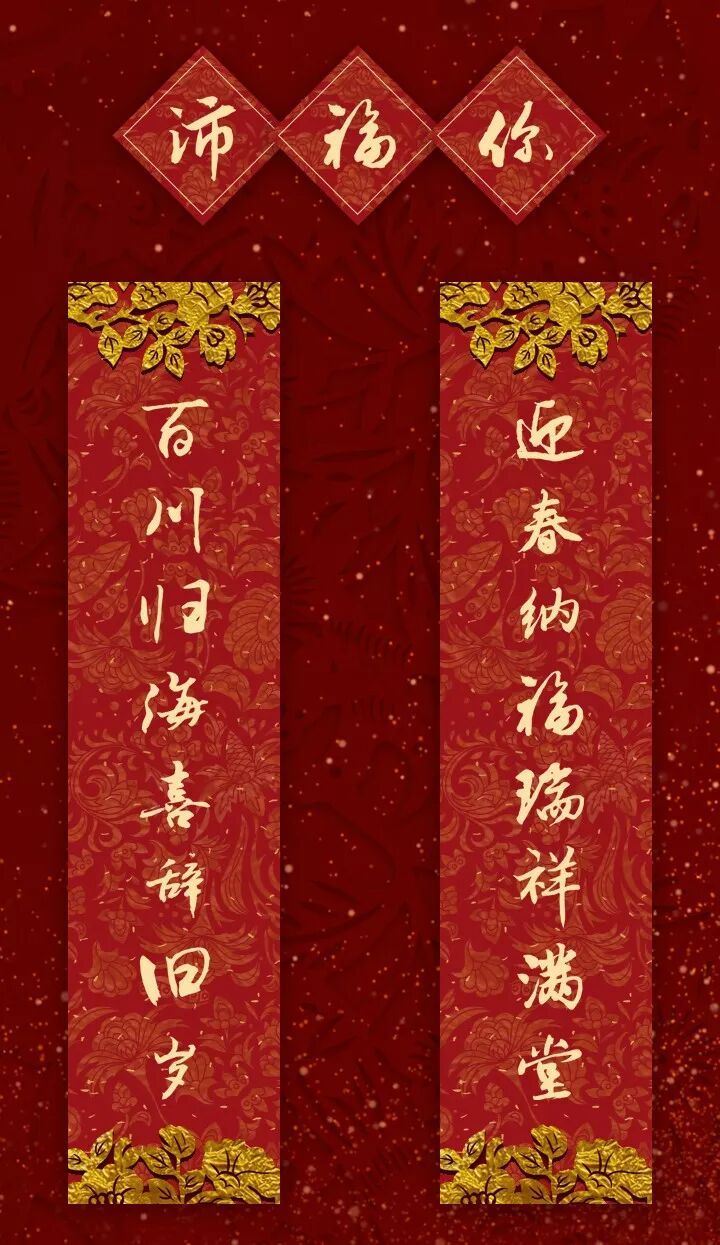 沛福你
百川归海喜辞旧岁
迎春纳福瑞祥满堂